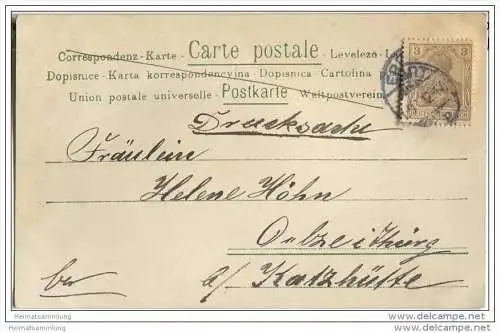 Correspondenz-Karte - Carte postale - Levelezo-L
Dopisnice - Karta korrespondencyjna - Dopisnica - Cartolina
Union postale universelle - Postkarte - Weltpostverein
3 3
Drucksache
Fräulein
Helene Höhn
Oelze i Thürg
b/ Katzhütte
Heimatsammlung
Heimatsammlung.com
www.delcampe.net